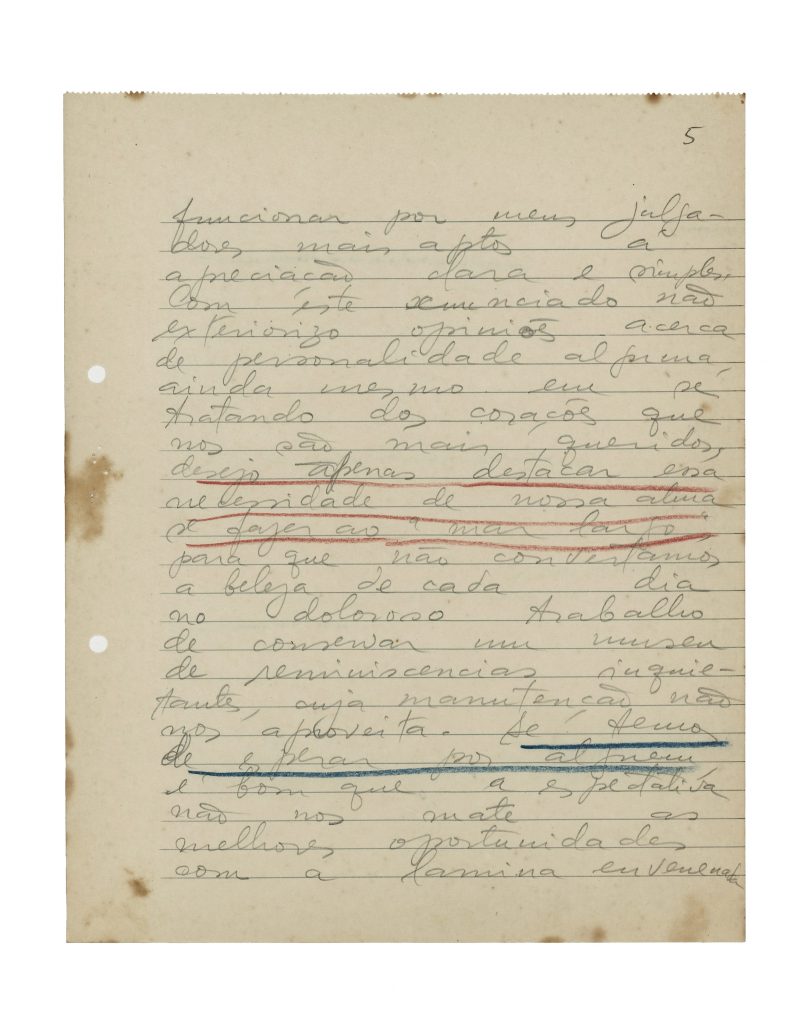 5
funcionar por meus julga-
dores mais aptos à
apreciação clara e simples.
Com éste enunciado não
exteriorizo opiniões acerca
de personalidade alguma,
ainda mesmo em se
tratando dos corações que
nos são mais queridos,
desejo apenas destacar essa
necessidade de nossa alma
se fazer ao "mar largo",
para que não convertamos
a beleza de cada dia
no doloroso trabalho
de conservar um museu
de reminiscencias inquie-
tantes, cuja manutenção não
nos aproveita. Se temos
de esperar por alguem
é bom que a espectativa
não nos mate as
melhores oportunidades
com a lamina envenenada